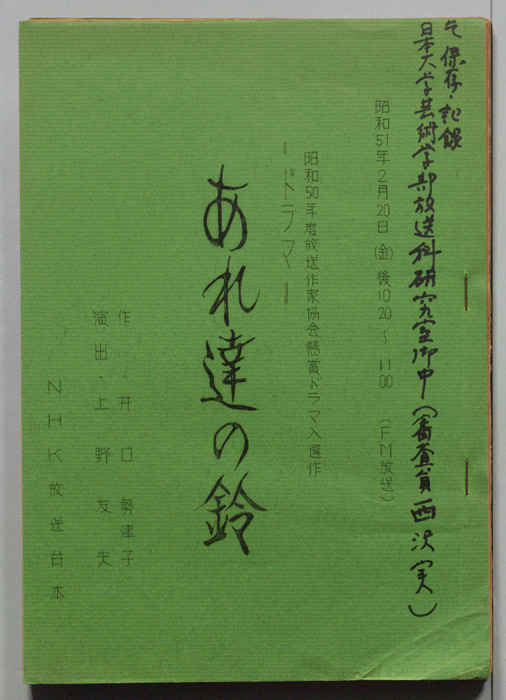 乞 保存・記録
日本大学芸術学部放送科研究室御中(審査員 西沢 実)
昭和51年2月20日(金)後10:20~11:00(FM放送)
昭和50年度放送作家協会懸賞ドラマ入選作
『ドラマ』
あれ達の鈴
作・井口勢津子
演出・上野友夫
NHK放送台本